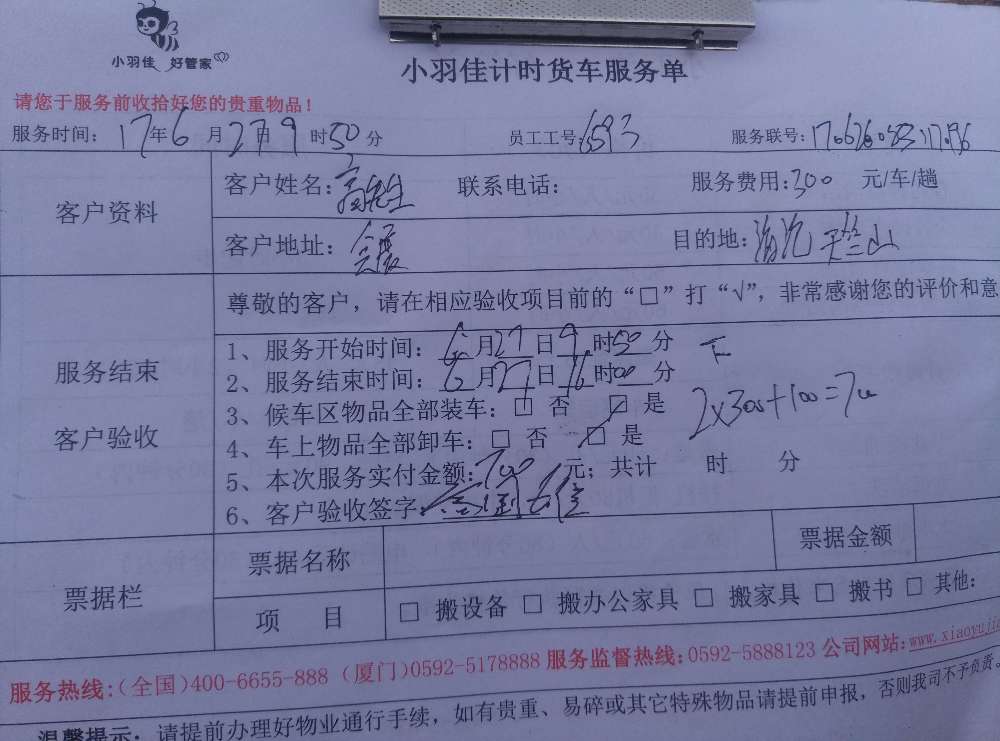 小羽佳 好管家
小羽佳计时货车服务单
请您于服务前收拾好您的贵重物品！
服务时间：17年6月27日9时50分 员工工号：6593 服务联号：
客户资料
客户姓名：高先生 联系电话： 服务费用：300 元/车/趟
客户地址：会展 目的地：海沧 天竺山
尊敬的客户，请在相应验收项目前的“□”打“√”，非常感谢您的评价和意
服务结束
客户验收
1、服务开始时间：6月27日9时50分
2、服务结束时间：6月27日16时00分
3、候车区物品全部装车：□ 否 ☑ 是
2×300+100=700
4、车上物品全部卸车：□ 否 ☑ 是
5、本次服务实付金额：700元；共计 时 分
6、客户验收签字：
票据栏
票据名称 票据金额
项 目 □ 搬设备 □ 搬办公家具 □ 搬家具 □ 搬书 □ 其他：
服务热线：（全国）400-6655-888（厦门）0592-5178888 服务监督热线：0592-5888123 公司网站：www.xiaoyujia
温馨提示：请提前办理好物业通行手续，如有贵重、易碎或其它特殊物品请提前申报，否则我司不予负责。